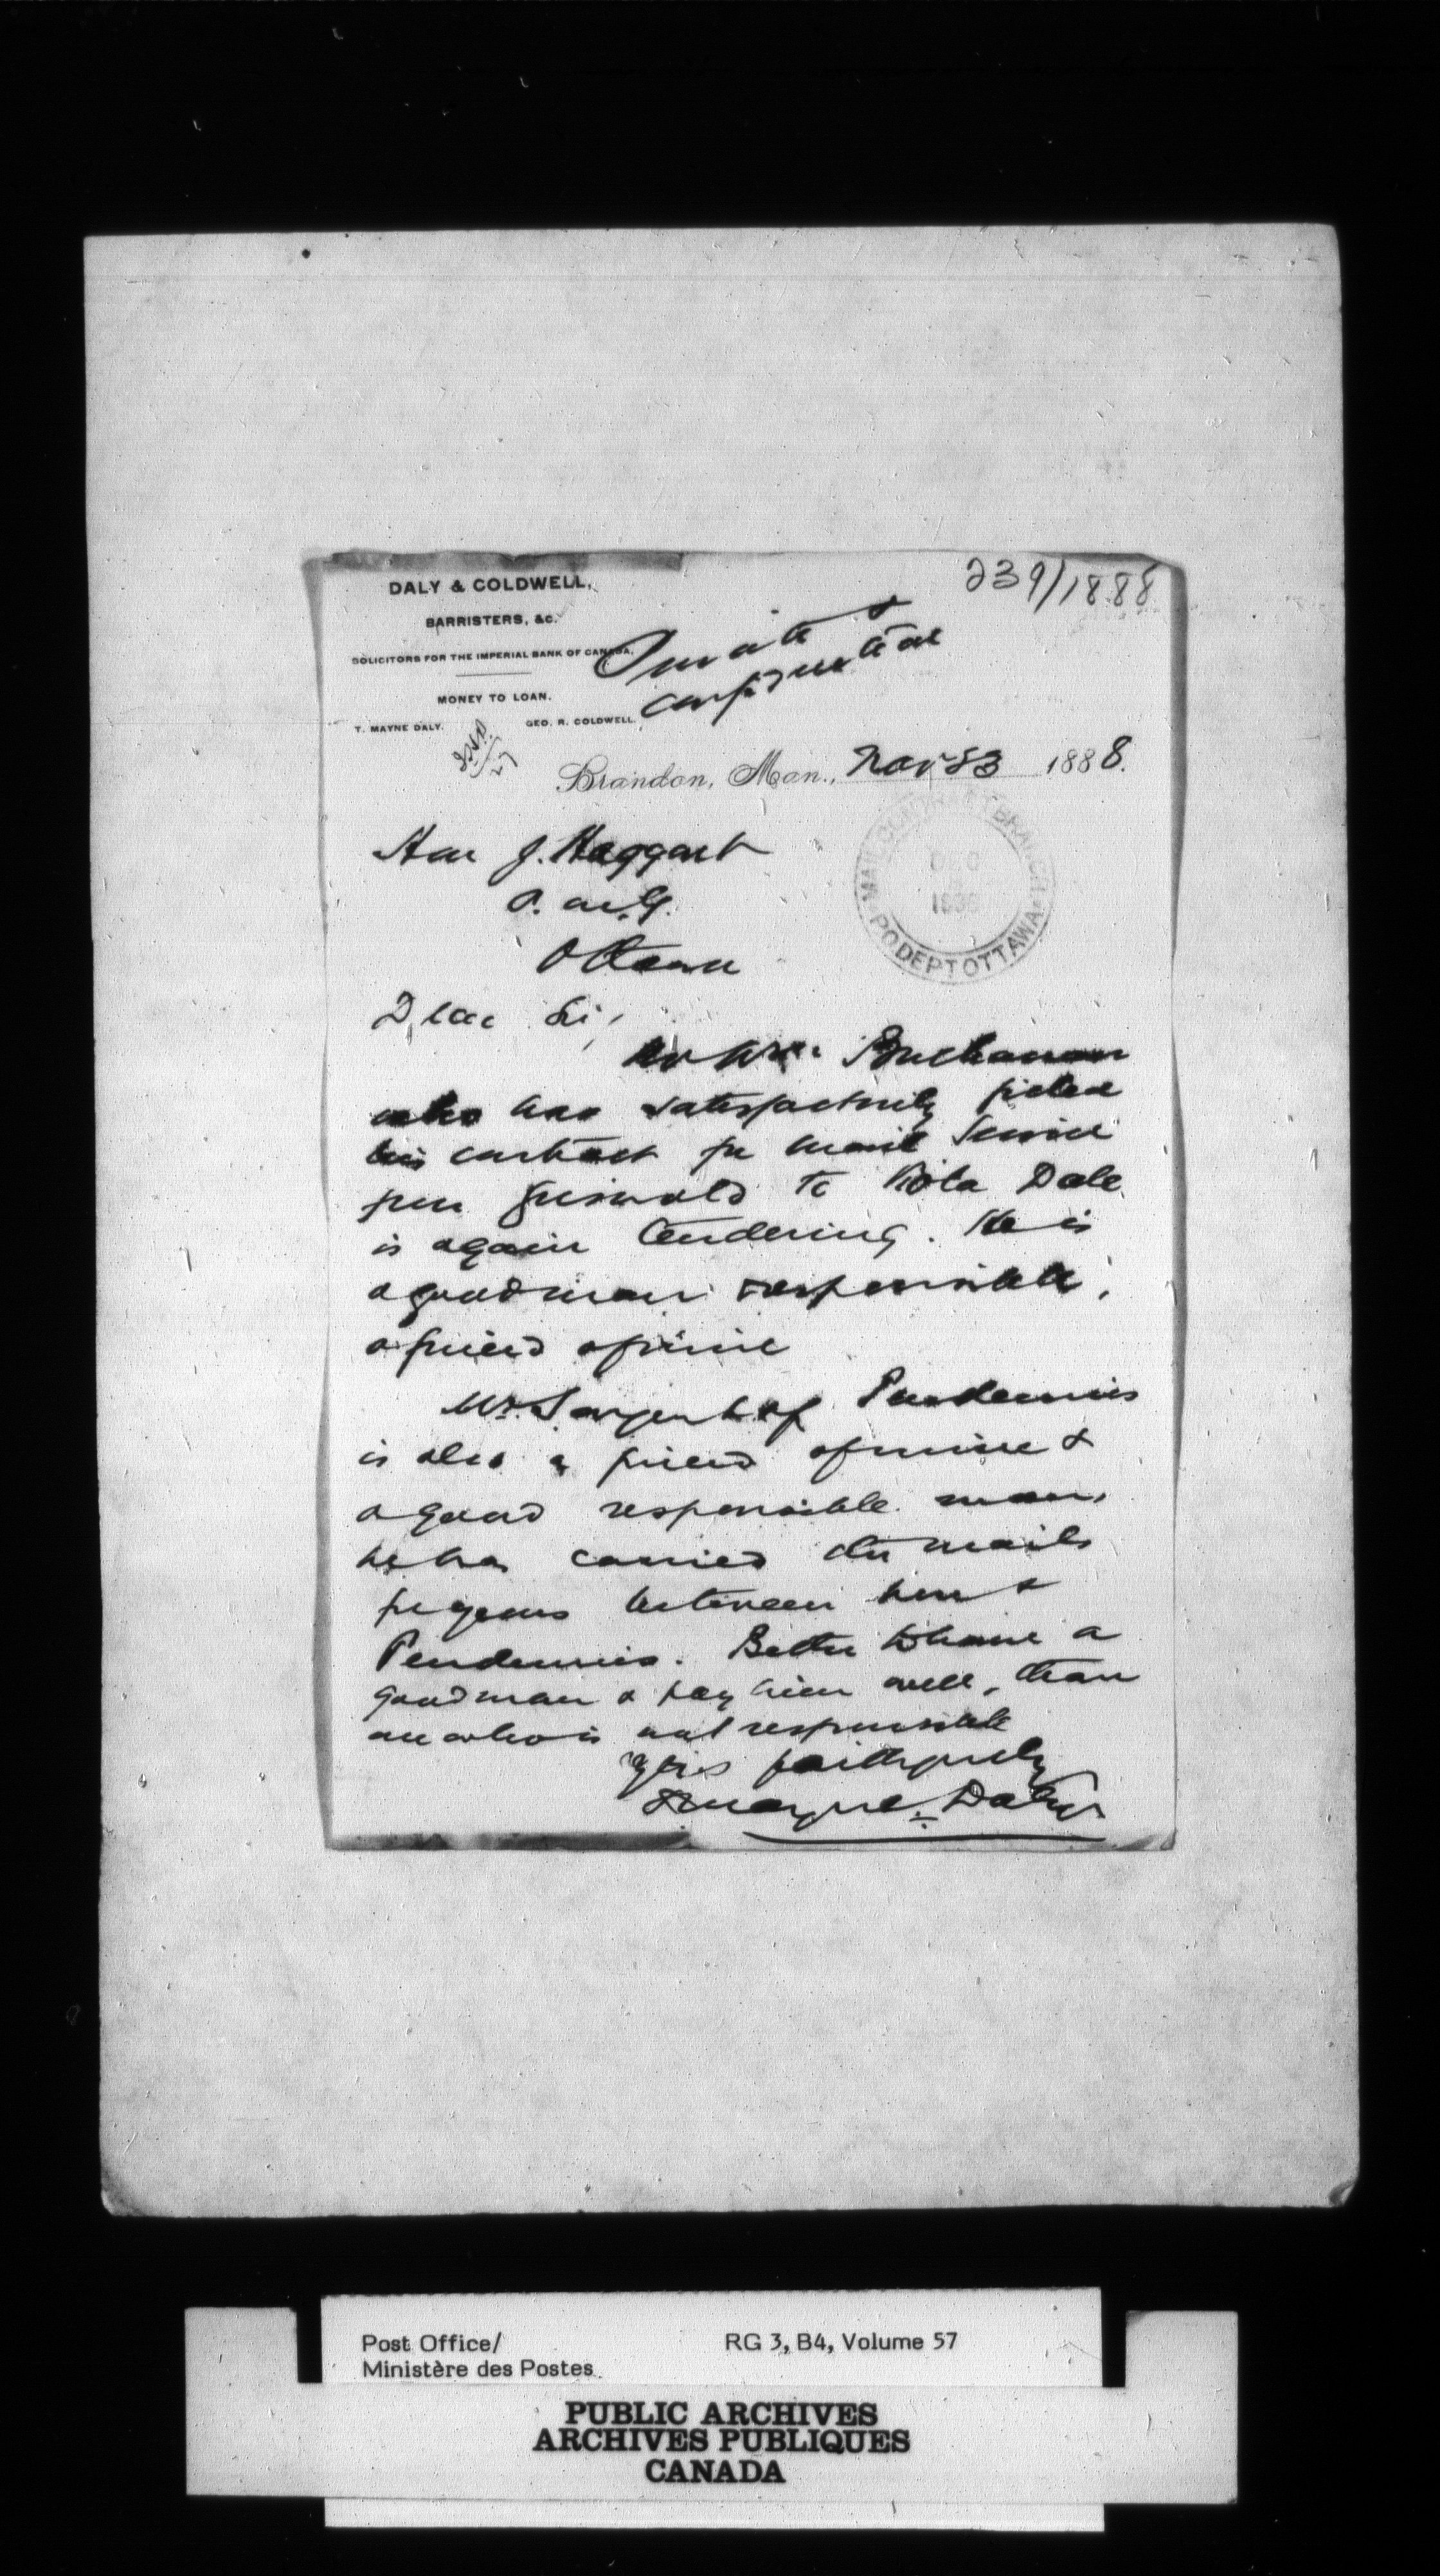 239/1888
DALY & COLDWELL,
BARRISTERS, &c.
SOLICITORS FOR THE IMPERIAL BANK OF CANADA.
Private &
confidential
MONEY TO LOAN.
T. MAYNE DALY. GEO. R. COLDWELL.
Brandon, Man., Nov 23 1888.
Hon J. Haggart
P. M. G.
Ottawa
MAIL CONTRACT BRANCH
DEC
P O DEPT OTTAWA
Dear Sir,
Mr Wm Buchanan
who has satisfactorily filled
his contract for mail service
from Griswold to Viola Dale
is again tendering. He is
a good man responsible,
a friend of mine
Mr. Sargent of Pendennis
is also a friend of mine &
a good responsible man,
he has carried the mails
for years between here &
Pendennis. Better to have a
good man & pay him well, than
one who is not responsible
Yrs faithfully
T Mayne Daly
Post Office/
Ministère des Postes
RG 3, B4, Volume 57
PUBLIC ARCHIVES
ARCHIVES PUBLIQUES
CANADA